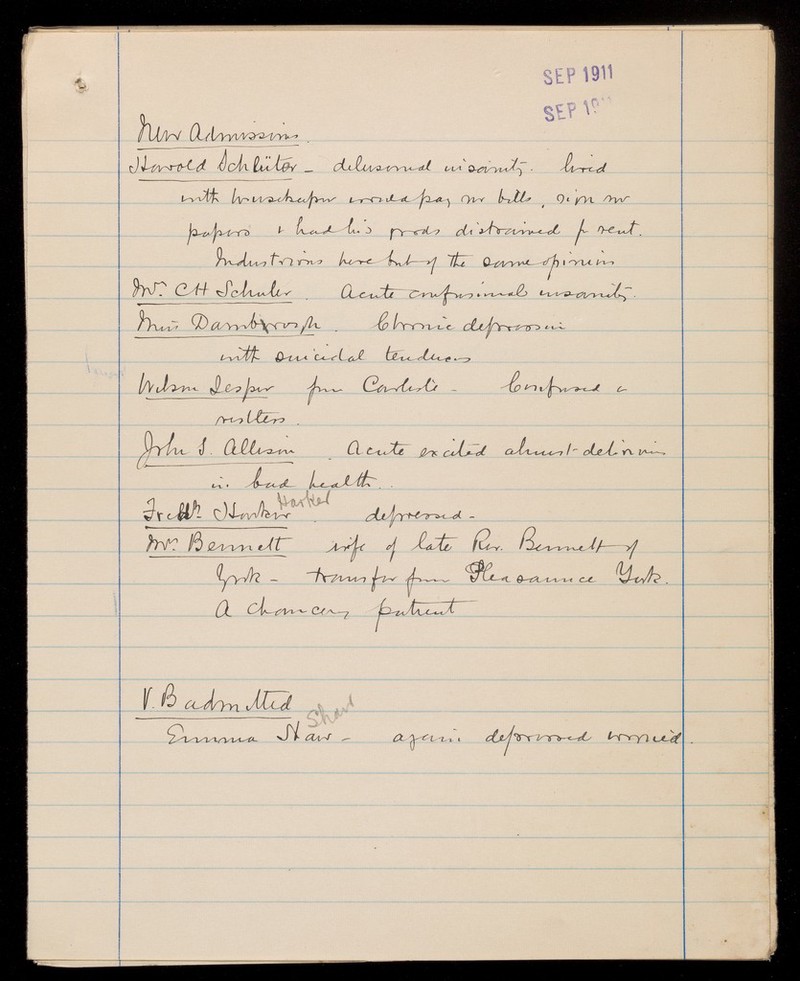 SEP 1911
SEP 19
New Admissions.
Harold Schlüter - delusional insanity. lived
with housekeeper would pay no bills, sign no
papers & had his goods distrained for rent.
Industrious here but of the same opinion
Mr. CH Schuler. Acute confusional insanity.
Miss Chronic depression
with suicidal tendencies
Wilson from Carlisle - Confused &
restless.
John S. Allison. Acute excited almost delirious
in bad health.
Harker
Fredk Harker. depressed -
Mrs. Bennett wife of late Rev. Bennett of
York - transfer from Pleasaunce York.
A Chancery patient
V.B admitted
Shaw
Emma Shaw - again depressed worried.